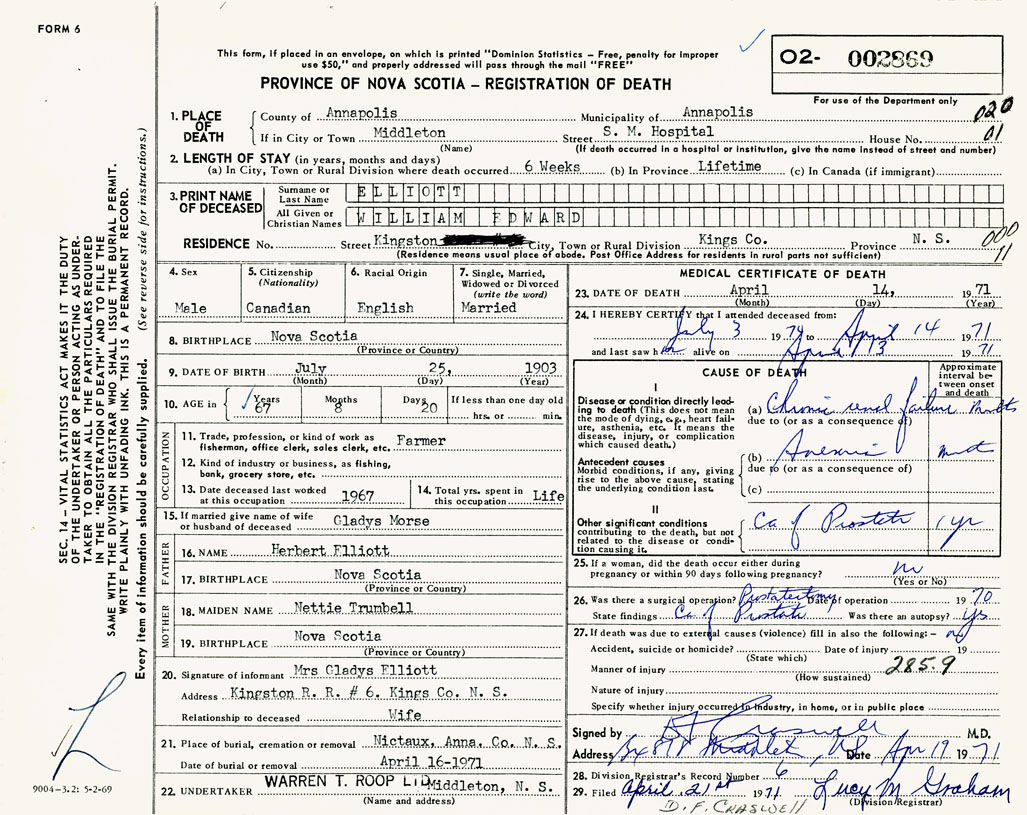 FORM 6
This form, if placed in an envelope, on which is printed "Dominion Statistics – Free, penalty for improper
use $50," and properly addressed will pass through the mail "FREE"
PROVINCE OF NOVA SCOTIA – REGISTRATION OF DEATH
02- 002869
For use of the Department only
020
01
1. PLACE OF DEATH
County of Annapolis Municipality of Annapolis
If in City or Town Middleton Street S. M. Hospital House No.
(Name) (If death occurred in a hospital or institution, give the name instead of street and number)
2. LENGTH OF STAY (in years, months and days)
(a) In City, Town or Rural Division where death occurred 6 Weeks (b) In Province Lifetime (c) In Canada (if immigrant)
3. PRINT NAME OF DECEASED
Surname or Last Name ELLIOTT
All Given or Christian Names WILLIAM EDWARD
RESIDENCE No. Street Kingston City, Town or Rural Division Kings Co. Province N. S.
000
11
(Residence means usual place of abode. Post Office Address for residents in rural parts not sufficient)
4. Sex
Male
5. Citizenship
(Nationality)
Canadian
6. Racial Origin
English
7. Single, Married,
Widowed or Divorced
(write the word)
Married
8. BIRTHPLACE Nova Scotia
(Province or Country)
9. DATE OF BIRTH July 25, 1903
(Month) (Day) (Year)
10. AGE in Years 67 Months 8 Days 20 If less than one day old
hrs. or min.
OCCUPATION
11. Trade, profession, or kind of work as
fisherman, office clerk, sales clerk, etc. Farmer
12. Kind of industry or business, as fishing,
bank, grocery store, etc.
13. Date deceased last worked
at this occupation 1967
14. Total yrs. spent in
this occupation Life
15. If married give name of wife
or husband of deceased Gladys Morse
FATHER
16. NAME Herbert Elliott
17. BIRTHPLACE Nova Scotia
MOTHER
18. MAIDEN NAME Nettie Trumbell
19. BIRTHPLACE Nova Scotia
(Province or Country)
20. Signature of informant Mrs Gladys Elliott
Address Kingston R. R. # 6. Kings Co. N. S.
Relationship to deceased Wife
21. Place of burial, cremation or removal Nictaux, Anna. Co. N. S.
Date of burial or removal April 16-1971
22. UNDERTAKER WARREN T. ROOP LTD Middleton, N. S.
(Name and address)
MEDICAL CERTIFICATE OF DEATH
23. DATE OF DEATH April 14, 1971
(Month) (Day) (Year)
24. I HEREBY CERTIFY that I attended deceased from:
July 3 1970 to April 14 1971
and last saw him alive on April 13 1971
CAUSE OF DEATH
Approximate
interval be-
tween onset
and death
I
Disease or condition directly lead-
ing to death (This does not mean
the mode of dying, e.g., heart fail-
ure, asthenia, etc. It means the
disease, injury, or complication
which caused death.)
(a) Chronic renal failure
due to (or as a consequence of)
Antecedent causes
Morbid conditions, if any, giving
rise to the above cause, stating
the underlying condition last.
(b) Anemia
due to (or as a consequence of)
(c)
II
Other significant conditions
contributing to the death, but not
related to the disease or condi-
tion causing it.
Ca of Prostate 1 yr
25. If a woman, did the death occur either during
pregnancy or within 90 days following pregnancy? no
(Yes or No)
26. Was there a surgical operation? Prostatectomy Date of operation 1970
State findings Ca of Prostate Was there an autopsy? Yes
27. If death was due to external causes (violence) fill in also the following: – no
Accident, suicide or homicide? Date of injury 19
(State which)
285.9
Manner of injury
(How sustained)
Nature of injury
Specify whether injury occurred in industry, in home, or in public place
Signed by D F Craswell M.D.
Address Box 878 Middleton, NS Date Apr 19 1971
28. Division Registrar's Record Number 6
29. Filed April 21st 1971 Lucy M Graham
(Division Registrar)
D. F. CRASWELL
SEC. 14 – VITAL STATISTICS ACT MAKES IT THE DUTY
OF THE UNDERTAKER OR PERSON ACTING AS UNDER-
TAKER TO OBTAIN ALL THE PARTICULARS REQUIRED
IN THE "REGISTRATION OF DEATH" AND TO FILE THE
SAME WITH THE DIVISION REGISTRAR WHO SHALL ISSUE THE BURIAL PERMIT.
WRITE PLAINLY WITH UNFADING INK. THIS IS A PERMANENT RECORD.
Every item of information should be carefully supplied. (See reverse side for instructions.)
9004-3.2: 5-2-69